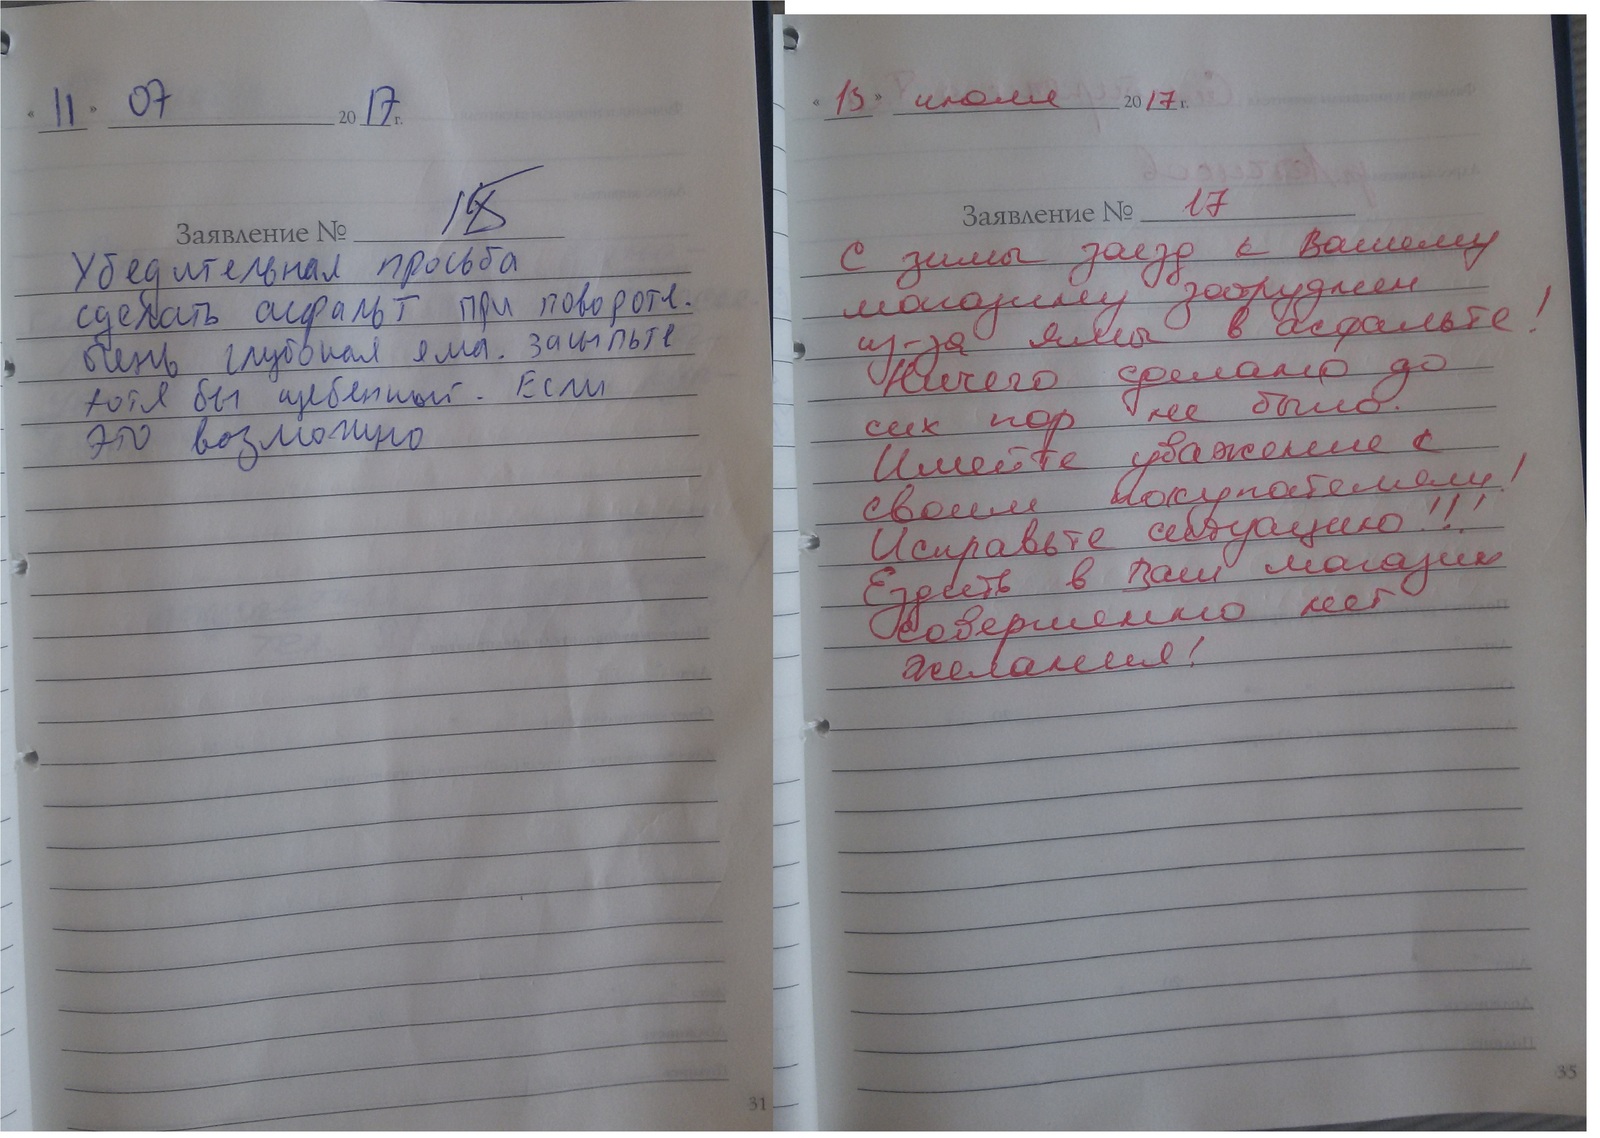 « 11 » 07 2017 г.
Заявление № 15
Убедительная просьба
сделать асфальт при повороте.
очень глубокая яма. засыпьте
хотя бы щебенкой. Если
это возможно
31
« 13 » июля 2017 г.
Заявление № 17
С зимы заезд к Вашему
магазину затруднен
из-за ямы в асфальте!
Ничего сделано до
сих пор не было.
Имейте уважение к
своим покупателям!
Исправьте ситуацию!!!
Ездить в Ваш магазин
совершенно нет
желания!
35